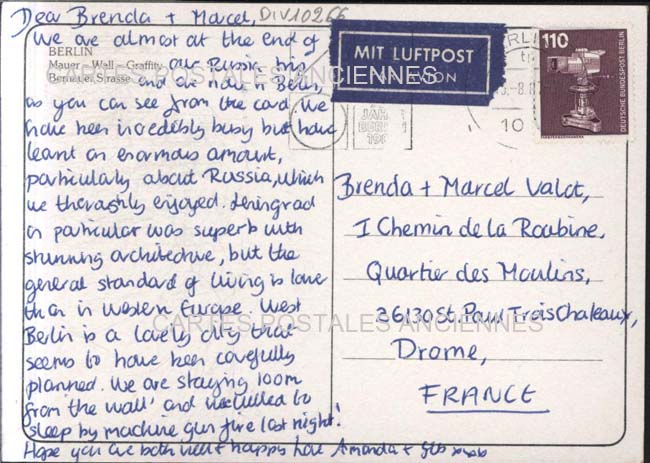 Dear Brenda + Marcel,
DIV10266
We are almost at the end of
our Russia trip
and are now in Berlin,
as you can see from the card. We
have been incredibly busy but have
learnt an enormous amount,
particularly about Russia, which
we thoroughly enjoyed. Leningrad
in particular was superb with
stunning architecture, but the
general standard of living is lower
than in western Europe. West
Berlin is a lovely city that
seems to have been carefully
planned. We are staying 100m
from the 'wall' and were lulled to
sleep by machine gun fire last night!
Hope you are both well + happy, love Amanda +
BERLIN
Mauer – Wall – Graffity
Bernauer Strasse
MIT LUFTPOST
PAR AVION
CARTES POSTALES ANCIENNES
JAHRE
BERLIN
10
110
DEUTSCHE BUNDESPOST BERLIN
Brenda + Marcel Valot,
1 Chemin de la Roubine,
Quartier des Moulins,
26130 St. Paul Trois Chateaux,
CARTES POSTALES ANCIENNES
Drome,
FRANCE